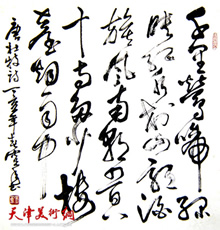 千里鶯啼綠
映紅水村山郭酒
旗風南朝四百八
十寺多少樓
臺烟雨中
唐杜牧詩丁亥年
天津美术网